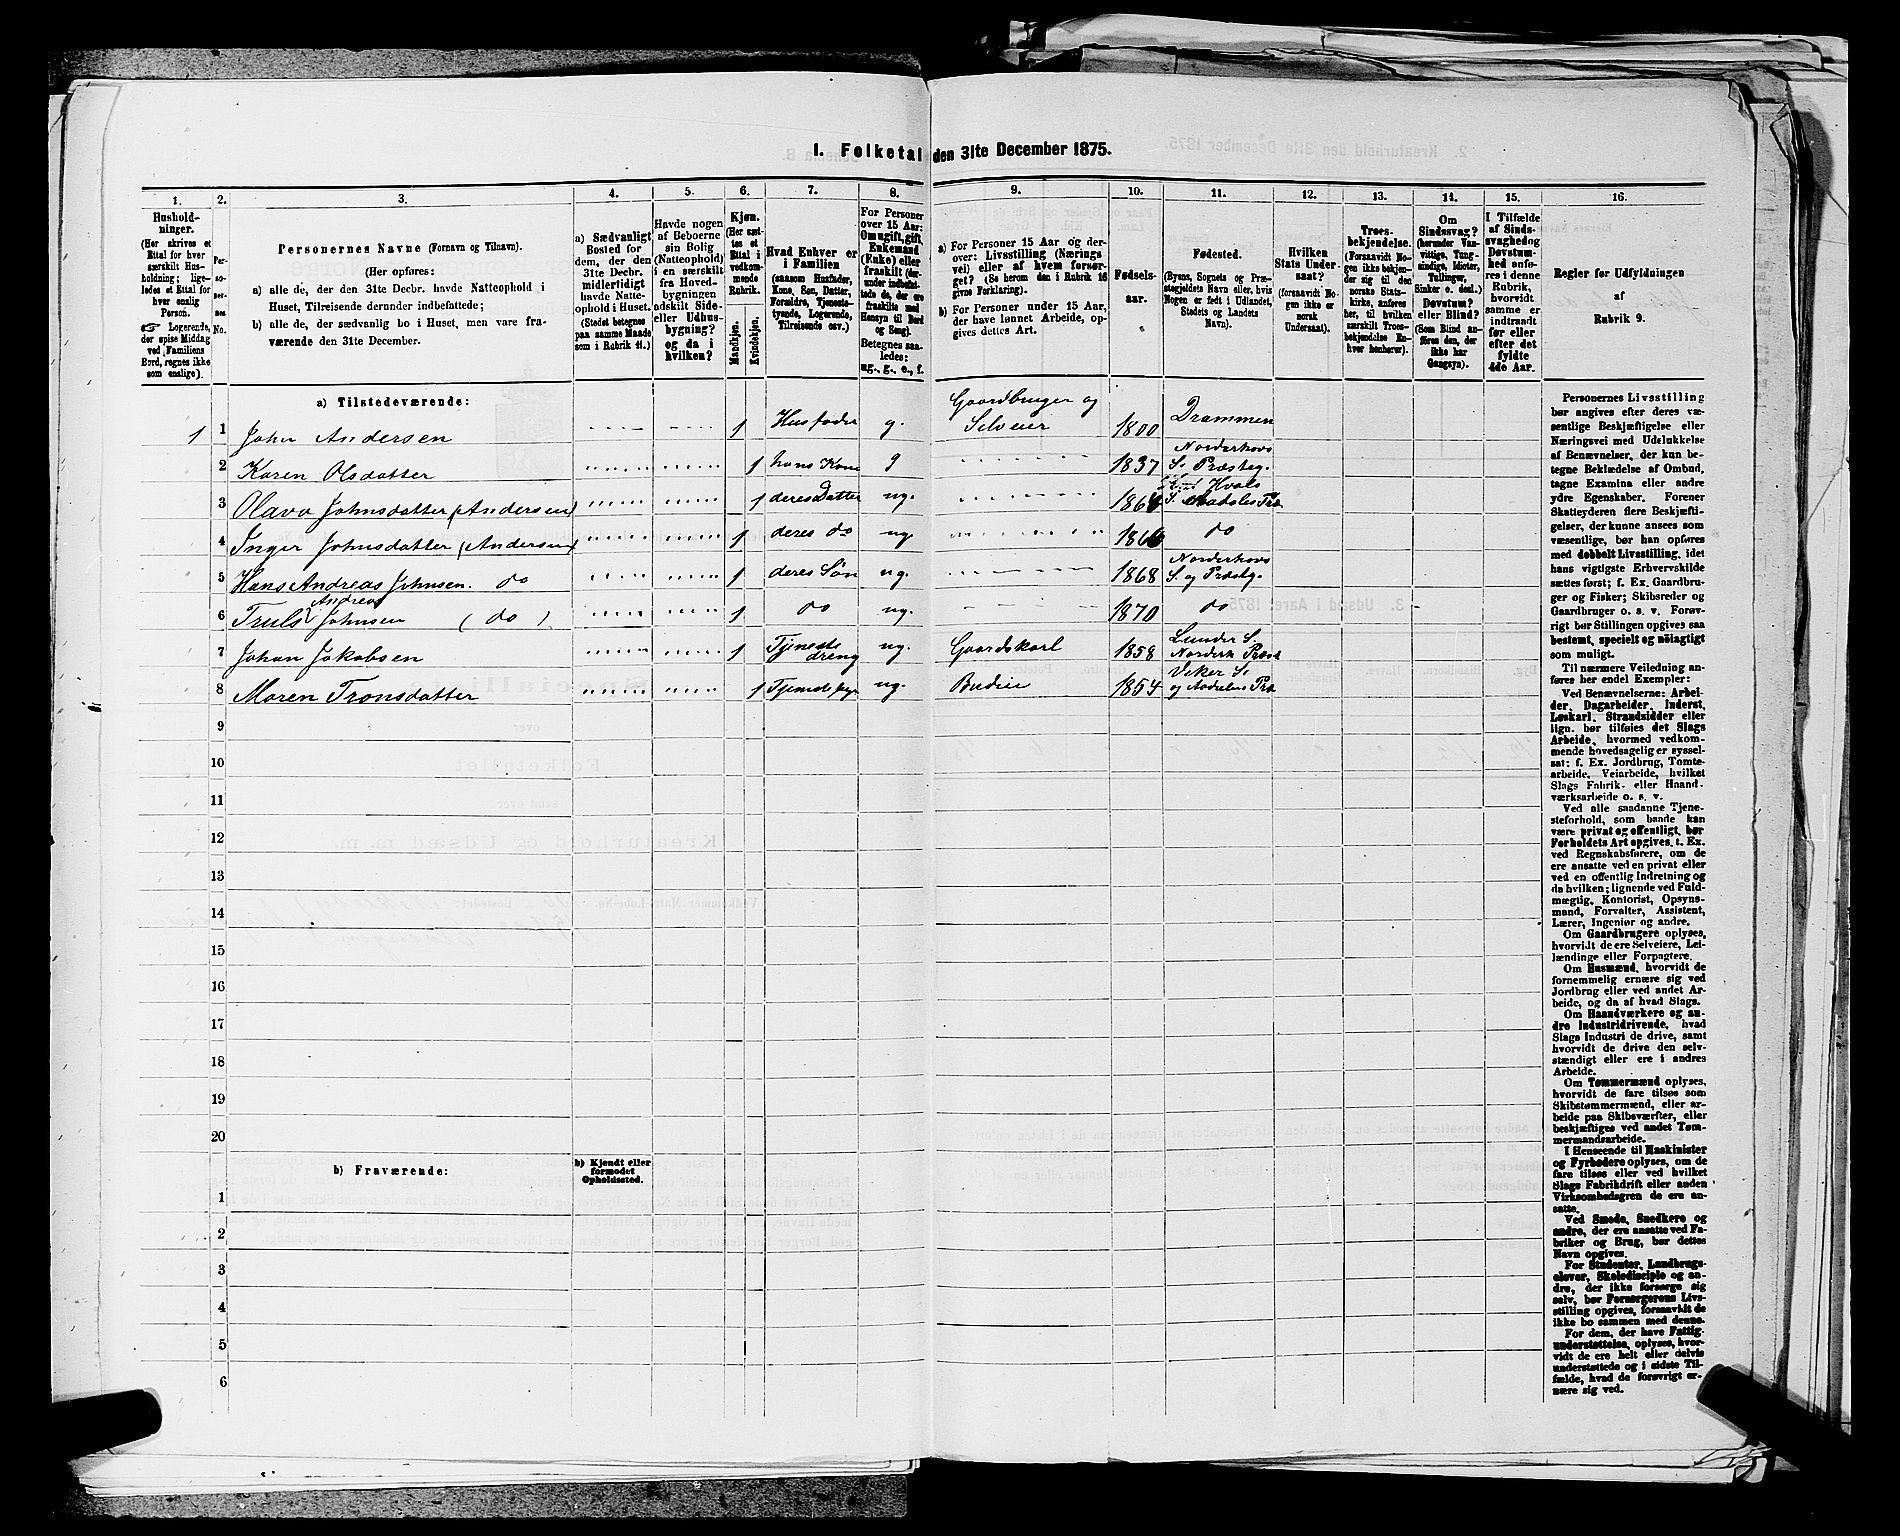 I. Folketal den 31te December 1875.
1. 2. 3. 4. 5. 6. 7. 8. 9. 10. 11. 12. 13. 14. 15. 16.
Hushold-
ninger.
(Her skrives et
Ettal for hver
særskilt Hus-
holdning; lige-
ledes et Ettal for
hver enslig
Person.
☞ Logerende,
der spise Middag
ved Familiens
Bord, regnes ikke
som enslige).
Per-
so-
ner-
nes
No.
Personernes Navne (Fornavn og Tilnavn).
(Her opføres:
a) alle de, der den 31te Decbr. havde Natteophold i
Huset, Tilreisende derunder indbefattede;
b) alle de, der sædvanlig bo i Huset, men vare fra-
værende den 31te December.
a) Sædvanligt
Bosted for
dem, der den
31te Decbr.
midlertidigt
havde Natte-
ophold i Huset.
(Stedet betegnes
paa samme Maade
som i Rubrik 11.)
Havde nogen
af Beboerne
sin Bolig
(Natteophold)
i en særskilt
fra Hoved-
bygningen
adskilt Side-
eller Udhus-
bygning?
og da i
hvilken?
Kjøn.
(Her sæt-
tes et
Ettal i
vedkom-
mende
Rubrik.
Mandkjøn.
Kvindekjøn.
Hvad Enhver er
i Familien
(saasom Husfader,
Kone, Søn, Datter,
Forældre, Tjeneste-
tyende, Logerende,
Tilreisende osv.)
For Personer
over 15 Aar:
Om ugift, gift,
Enkemand
(Enke) eller
fraskilt (der-
under indbefat-
tede de, der ere
fraskilte med
Hensyn til Bord
og Seng).
Betegnes saa-
ledes:
ug., g., e., f.
a) For Personer 15 Aar og der-
over: Livsstilling (Nærings-
vei) eller af hvem forsør-
get? (Se herom den i Rubrik 16
givne Forklaring).
b) For Personer under 15 Aar,
der have lønnet Arbeide, op-
gives dettes Art.
Fødsels-
aar.
Fødested.
(Byens, Sognets og Præ-
stegjeldets Navn eller, hvis
Nogen er født i Udlandet,
Stedets og Landets
Navn).
Hvilken
Stats Under-
saat?
(forsaavidt No-
gen ikke er
norsk
Undersaat).
Troes-
bekjendelse.
(Forsaavidt No-
gen ikke bekjen-
der sig til den
norske Stats-
kirke, anføres
her, til hvilken
særskilt Troes-
bekjendelse En-
hver henhører).
Om
Sindssvag?
(herunder Van-
vittige, Tung-
sindige, Idioter,
Tullinger,
Sinker o. desl.)
Døvstum?
eller Blind?
(Som Blind an-
føres den, der
ikke har
Gangsyn).
I Tilfælde
af Sinds-
svaghed og
Døvstum-
hed anfø-
res i denne
Rubrik,
hvorvidt
samme er
indtraadt
før eller
efter det
fyldte
4de Aar.
Regler for Udfyldningen
af
Rubrik 9.
a) Tilstedeværende:
1 1 John Andersen 1 Husfader g. Gaardbruger og Selveier 1800 Drammen
2 Karen Olsdatter 1 hans Kone g 1837 Norderhovs S. Præsteg.
3 Olava Johnsdatter (Andersen) 1 deres Datter ug. Hvals S. Aadalens Præ
4 Inger Johnsdatter (Andersen) 1 deres do ug. 1866 do
5 Hans Andreas Johnsen do 1 deres Søn ug. 1868 Norderhovs S. og Præstg.
6 Truls Andreas Johnsen (do) 1 do ug. 1870 do
7 Johan Jakobsen 1 Tjeneste dreng ug. Gaardskarl 1858 Lunder S. Norderh Præst
8 Maren Tronsdatter 1 ug. Budeie 1854 Viker S. og Aadalens Præ
9
10
11
12
13
14
15
16
17
18
19
20
b) Fraværende:
b) Kjendt eller
formodet
Opholdssted.
1
2
3
4
5
6
Personernes Livsstilling
bør angives efter deres væ-
sentlige Beskjæftigelse eller
Næringsvei med Udelukkelse
af Benævnelser, der kun be-
tegne Beklædelse af Ombud,
tagne Examina eller andre
ydre Egenskaber. Forener
Skatteyderen flere Beskjæfti-
gelser, der kunne ansees som
væsentlige, bør han opføres
med dobbelt Livsstilling, idet
hans vigtigste Erhvervskilde
sættes først; f. Ex. Gaardbru-
ger og Fisker; Skibsreder og
Gaardbruger o. s. v. Forøv-
rigt bør Stillingen opgives saa
bestemt, specielt og nøiagtigt
som muligt.
Til nærmere Veiledning an-
føres her endel Exempler:
Ved Benævnelserne: Arbei-
der, Dagarbeider, Inderst,
Løskarl, Strandsidder eller
lign. bør tilføies det Slags
Arbeide, hvormed vedkom-
mende hovedsagelig er syssel-
sat; f. Ex. Jordbrug, Tomte-
arbeide, Veiarbeide, hvilket
Slags Fabrik- eller Haand-
værksarbeide o. s. v.
Ved alle saadanne Tjene-
steforhold, som baade kan
være privat og offentligt, bør
Forholdets Art opgives, t. Ex.
ved Regnskabsførere, om de
ere ansatte ved en privat eller
ved en offentlig Indretning og
da hvilken; lignende ved Fuld-
mægtig, Kontorist, Opsyns-
mand, Forvalter, Assistent,
Lærer, Ingeniør og andre.
Om Gaardbrugere oplyses,
hvorvidt de ere Selveiere, Lei-
lændinge eller Forpagtere.
Om Husmænd, hvorvidt de
fornemmelig ernære sig ved
Jordbrug eller ved andet Ar-
beide, og da af hvad Slags.
Om Haandværkere og an-
dre Industridrivende, hvad
Slags Industri de drive, samt
hvorvidt de drive den selv-
stændigt eller ere i andres
Arbeide.
Om Tømmermænd oplyses,
hvorvidt de fare tilsøs som
Skibstømmermænd, eller ar-
beide paa Skibsværfter, eller
beskjæftiges ved andet Tøm-
mermandsarbeide.
I Henseende til Maskinister
og Fyrbødere oplyses, om de
fare tilsøs eller ved hvilket
Slags Fabrikdrift eller anden
Virksomhedsgren de ere an-
satte.
Ved Smede, Snedkere og
andre, der ere ansatte ved Fa-
briker og Brug, bør dettes
Navn opgives.
For Studenter, Landbrugs-
elever, Skoledisciple og an-
dre, der ikke forsørge sig
selv, bør Forsørgerens Livs-
stilling opgives, forsaavidt de
ikke bo sammen med denne.
For dem, der have Fattig-
understøttelse, oplyses, hvor-
vidt de ere helt eller delvis
understøttede og i sidste Til-
fælde, hvad de forøvrigt er-
nære sig ved.